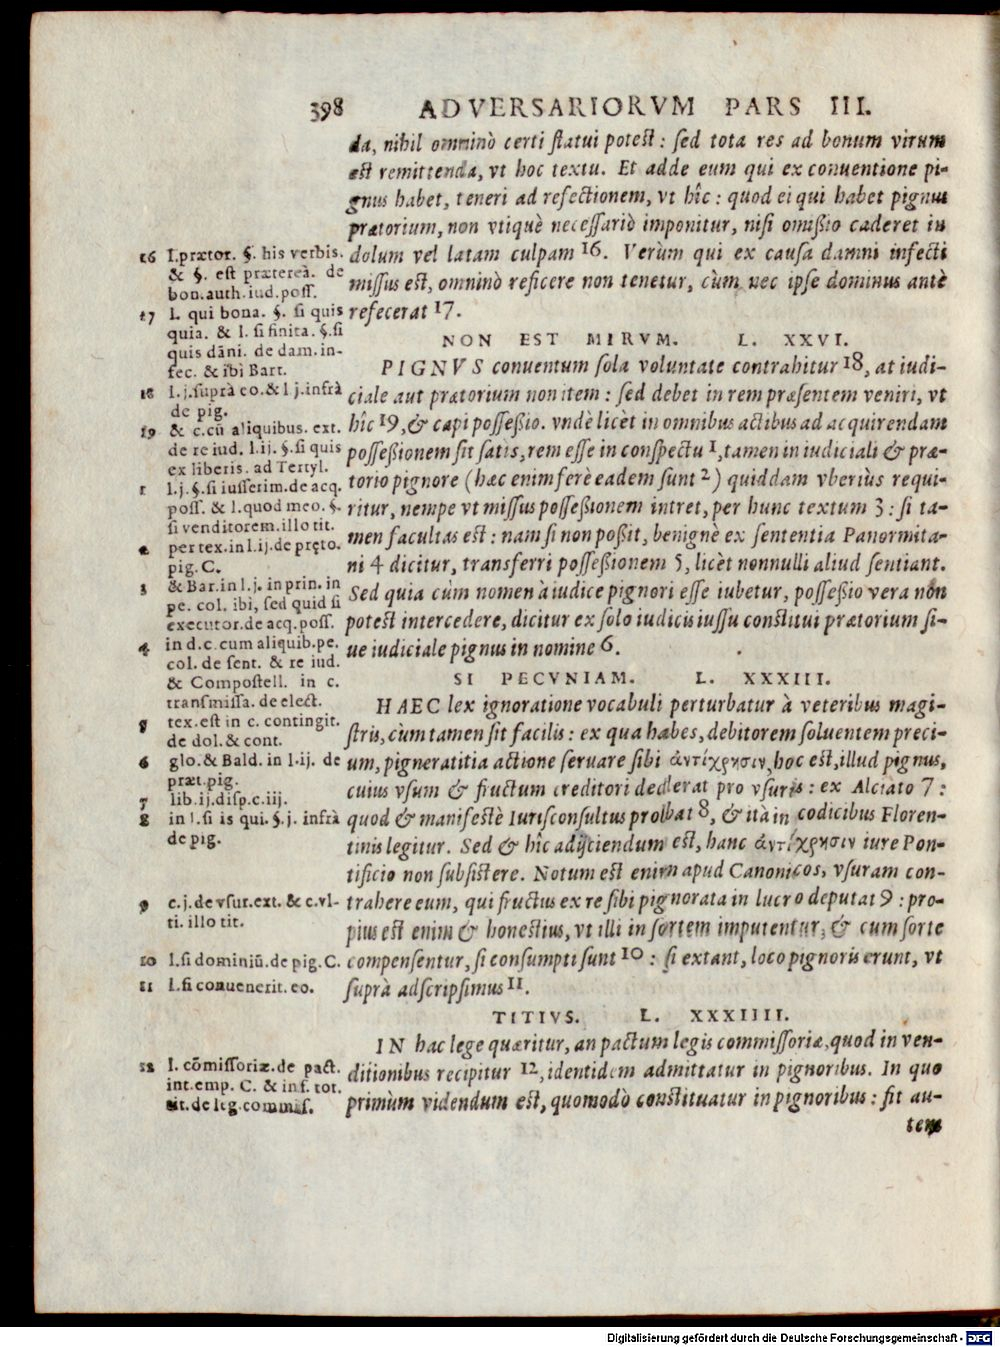 398 ADVERSARIORVM PARS III.
da, nihil omninò certi statui potest: sed tota res ad bonum virum
est remittenda, vt hoc textu. Et adde eum qui ex conuentione pi-
gnus habet, teneri ad refectionem, vt hîc: quod ei qui habet pignus
prætorium, non vtiquè necessariò imponitur, nisi omißio caderet in
dolum vel latam culpam 16. Verùm qui ex causa damni infecti
missus est, omninò reficere non tenetur, cùm nec ipse dominus antè
refecerat 17.
NON EST MIRVM. L. XXVI.
PIGNVS conuentum sola voluntate contrahitur 18, at iudi-
ciale aut prætorium non item: sed debet in rem præsentem veniri, vt
hîc 19, & capi posseßio. vndè licèt in omnibus actibus ad acquirendam
posseßionem sit satis, rem esse in conspectu 1, tamen in iudiciali & præ-
torio pignore (hæc enim ferè eadem sunt 2) quiddam vberiùs requi-
ritur, nempe vt missus posseßionem intret, per hunc textum 3: si ta-
men facultas est: nam si non poßit, benignè ex sententia Panormita-
ni 4 dicitur, transferri posseßionem 5, licèt nonnulli aliud sentiant.
Sed quia cùm nomen à iudice pignori esse iubetur, posseßio vera non
potest intercedere, dicitur ex solo iudicis iussu constitui prætorium si-
ue iudiciale pignus in nomine 6.
SI PECVNIAM. L. XXXIII.
HAEC lex ignoratione vocabuli perturbatur à veteribus magi-
stris, cùm tamen sit facilis: ex qua habes, debitorem soluentem preci-
um, pigneratitia actione seruare sibi ἀντίχρησιν, hoc est, illud pignus,
cuius vsum & fructum creditori dederat pro vsuris: ex Alciato 7:
quod & manifestè Iurisconsultus probat 8, & ità in codicibus Floren-
tinis legitur. Sed & hîc adijciendum est, hanc ἀντίχρησιν iure Pon-
tificio non subsistere. Notum est enim apud Canonicos, vsuram con-
trahere eum, qui fructus ex re sibi pignorata in lucro deputat 9: pro-
pius est enim & honestius, vt illi in sortem imputentur, & cum sorte
compensentur, si consumpti sunt 10: si extant, loco pignoris erunt, vt
suprà adscripsimus 11.
TITIVS. L. XXXIIII.
IN hac lege quæritur, an pactum legis commissoriæ, quod in ven-
ditionibus recipitur 12, identidem admittatur in pignoribus. In quo
primùm videndum est, quomodò constituatur in pignoribus: fit au-
tem
16 l. prætor. §. his verbis.
& §. est prætereà. de
bon. auth. iud. poss.
17 l. qui bona. §. si quis
quia. & l. si finita. §. si
quis dāni. de dam. in-
fec. & ibi Bart.
18 l. j. suprà eo. & l j. infrà
de pig.
19 & c. cū aliquibus. ext.
de re iud. l. ij. §. si quis
ex liberis. ad Tertyl.
1 l. j. §. si iusserim. de acq.
poss. & l. quod meo. §.
si venditorem. illo tit.
2 per tex. in l. ij. de pręto.
pig. C.
3 & Bar. in l. j. in prin. in
pe. col. ibi, sed quid si
executor. de acq. poss.
4 in d. c. cum aliquib. pe.
col. de sent. & re iud.
& Compostell. in c.
transmissa. de elect.
5 tex. est in c. contingit.
de dol. & cont.
6 glo. & Bald. in l. ij. de
præt. pig.
7 lib. ij. disp. c. iij.
8 in l. si is qui. §. j. infrà
de pig.
9 c. j. de vsur. ext. & c. vl-
ti. illo tit.
10 l. si dominiū. de pig. C.
11 l. si conuenerit. eo.
12 l. cōmissoriæ. de pact.
int. emp. C. & inf. tot.
tit. de leg. commis.
Digitalisierung gefördert durch die Deutsche Forschungsgemeinschaft - DFG